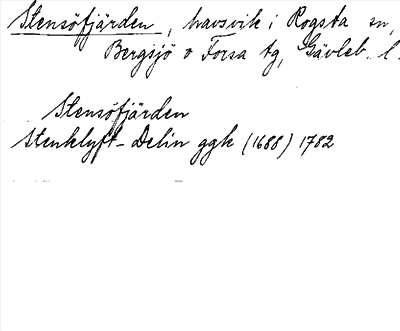 Stensöfjärden, havsvik i Rogsta sn,
Bergsjö o Forsa tg, Gävleb. l.
Stensöfjärden
Stenklyft-Delin ggk (1688) 1782